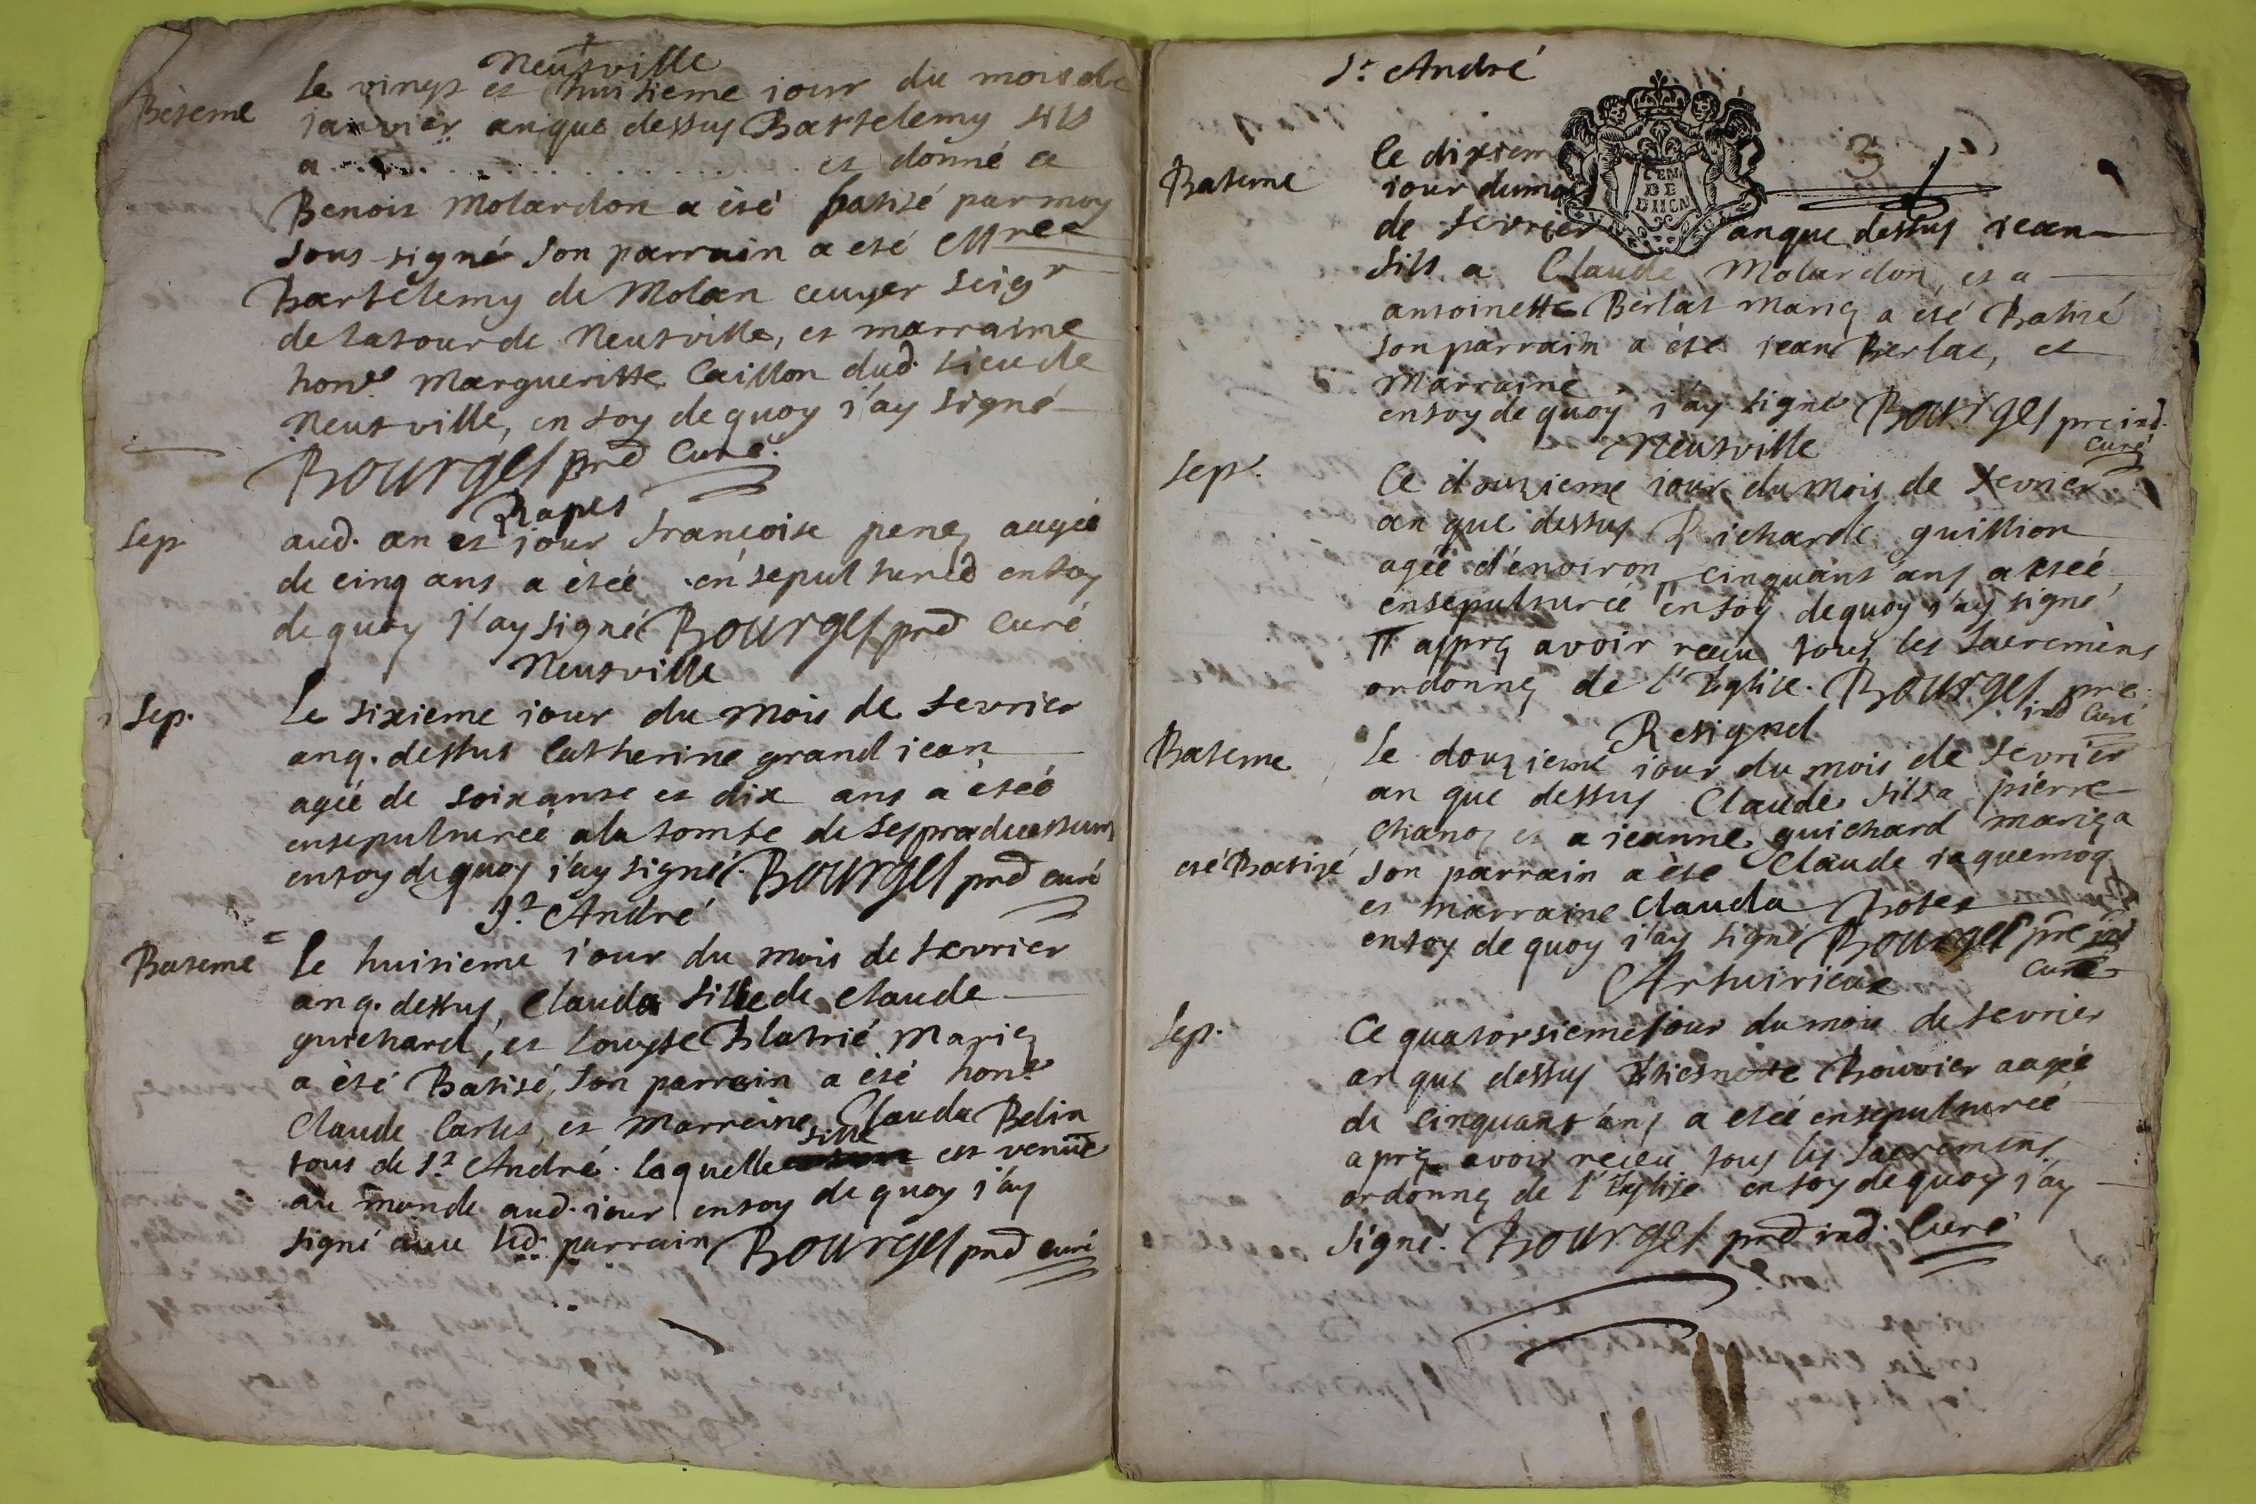 Neufville
Bateme
Le vingt et huitieme iour du mois de
ianvier an que dessus Bartelemy fils
a . . . . . . . . . . et donné a
Benoit Molardon a été batisé par moy
sous signé son parrain a eté Messre
Bartelemy de Molan ecuyer seigr
de la tour de Neufville, et marraine
hone Margueritte Caillon dud. lieu de
Neufville, en foy de quoy i'ay signé
Bourges pred Curé
Rapes
Sep
aud. an et iour francoise penez aagée
de cinq ans a étéé ensepulturée en foy
de quoy j'ay signé Bourges pred curé
Neufville
Sep.
Le sixieme iour du mois de fevrier
an q. dessus Catherine grand iean
agéé de soixante et dix ans a étéé
ensepulturéé a la tombe de ses predecesseurs
en foy de quoy i'ay signé. Bourges pred curé
St André
Bateme
Le huitieme iour du mois de fevrier
an q. dessus, Clauda fille de Claude
guichard, et Louyse Blatrié Mariez
a été Batisé, son parrain a été hone
Claude Carles, et Marraine Clauda Belin
tous de St André. laquelle fille est venüe
au monde aud. iour en foy de quoy j'ay
signé avec led. parrain Bourges pred curé
St André
3
GEN
DE
DIION
Bateme
Le dixiem
iour du moi
de fevrier an que dessus iean
fils a Claude Molardon, et a
antoinette Berlat Mariez a eté Batisé
son parrain a été iean Berlat, et
Marraine
en foy de quoy i'ay signé Bourges pre ind.
curé
Neufville
Sepe.
Ce douzieme iour du mois de fevrier
an que dessus Richarde guillion
agéé d'environ cinquant ans a etéé
ensepulturéé en foy de quoy i'ay signé
appres avoir receu tous les Sacremens
ordonnez de l'Eglise. Bourges pre.
ind Curé
Resignel
Bateme
Le douzieme iour du mois de fevrier
an que dessus Claude fils a pierre
Chanoz et a ieanne guichard mariez a
eté Batisé son parrain a été Claude iaquemoz
et marraine Clauda Botex
en foy de quoy i'ay signé Bourges pre ind
curé
Sep.
Ce quatorsieme iour du mois de fevrier
an que dessus Etiesnette Bouvier aagéé
de cinquant ans a etéé ensepulturéé
aprez avoir receu tous les Sacremens
ordonnez de l'Eglise en foy de quoy j'ay
signé. Bourges pred ind. Curé